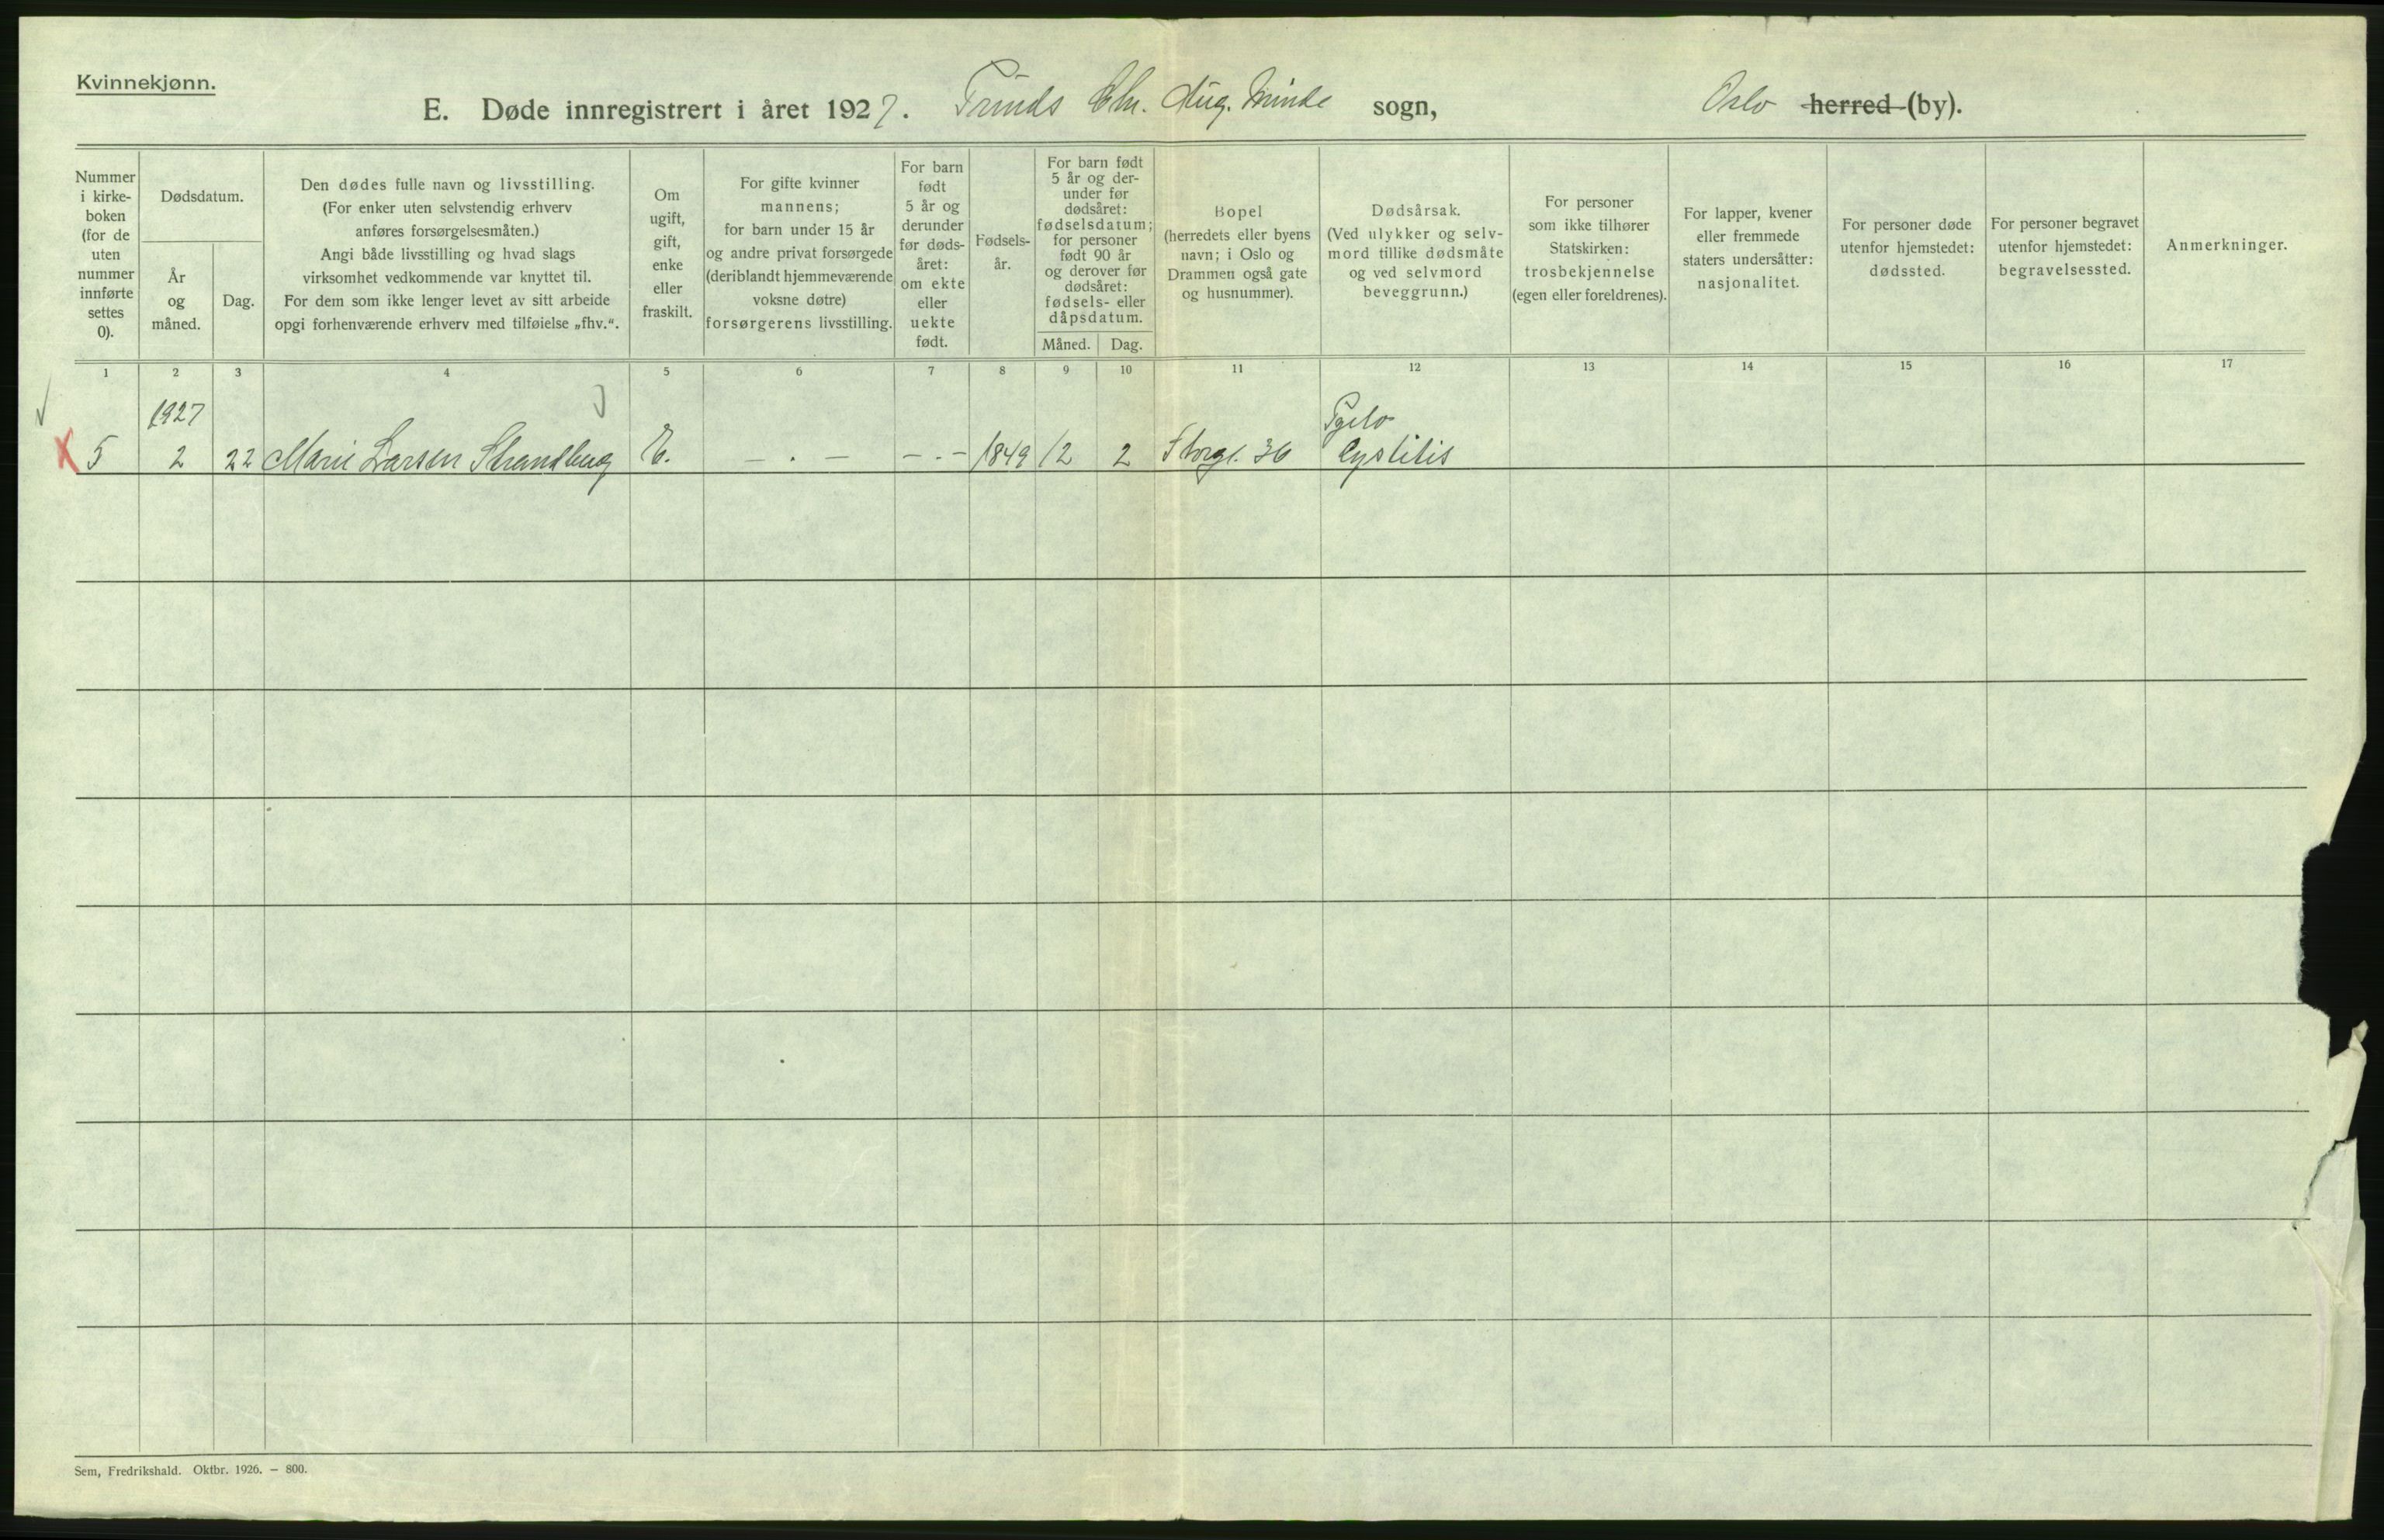 Kvinnekjønn.
E. Døde innregistrert i året 1927. Prinds Chr. Aug. Minde sogn, Oslo herred (by).
Nummer i kirke- boken (for de uten nummer innførte settes 0).
Dødsdatum.
År og måned.
Dag.
Den dødes fulle navn og livsstilling.
(For enker uten selvstendig erhverv
anføres forsørgelsesmåten.)
Angi både livsstilling og hvad slags
virksomhet vedkommende var knyttet til.
For dem som ikke lenger levet av sitt arbeide
opgi forhenværende erhverv med tilføielse „fhv.“.
Om
ugift,
gift,
enke
eller
fraskilt.
For gifte kvinner
mannens;
for barn under 15 år
og andre privat forsørgede
(deriblandt hjemmeværende
voksne døtre)
forsørgerens livsstilling.
For barn
født
5 år og
derunder
før døds-
året:
om ekte
eller
uekte
født.
Fødsels-
år.
For barn født
5 år og der-
under før
dødsåret:
fødselsdatum;
for personer
født 90 år
og derover før
dødsåret:
fødsels- eller
dåpsdatum.
Måned. Dag.
Bopel
(herredets eller byens
navn; i Oslo og
Drammen også gate
og husnummer).
Dødsårsak.
(Ved ulykker og selv-
mord tillike dødsmåte
og ved selvmord
beveggrunn.)
For personer
som ikke tilhører
Statskirken:
trosbekjennelse
(egen eller foreldrenes).
For lapper, kvener
eller fremmede
staters undersåtter:
nasjonalitet.
For personer døde
utenfor hjemstedet:
dødssted.
For personer begravet
utenfor hjemstedet:
begravelsessted.
Anmerkninger.
1 2 3 4 5 6 7 8 9 10 11 12 13 14 15 16 17
1927 Pyelo
X 5 2 22 Marie Larsen Strandberg E. — . — — . — 1849 12 2 Storgt. 36 Cystitis
Sem, Fredrikshald. Oktbr. 1926. — 800.